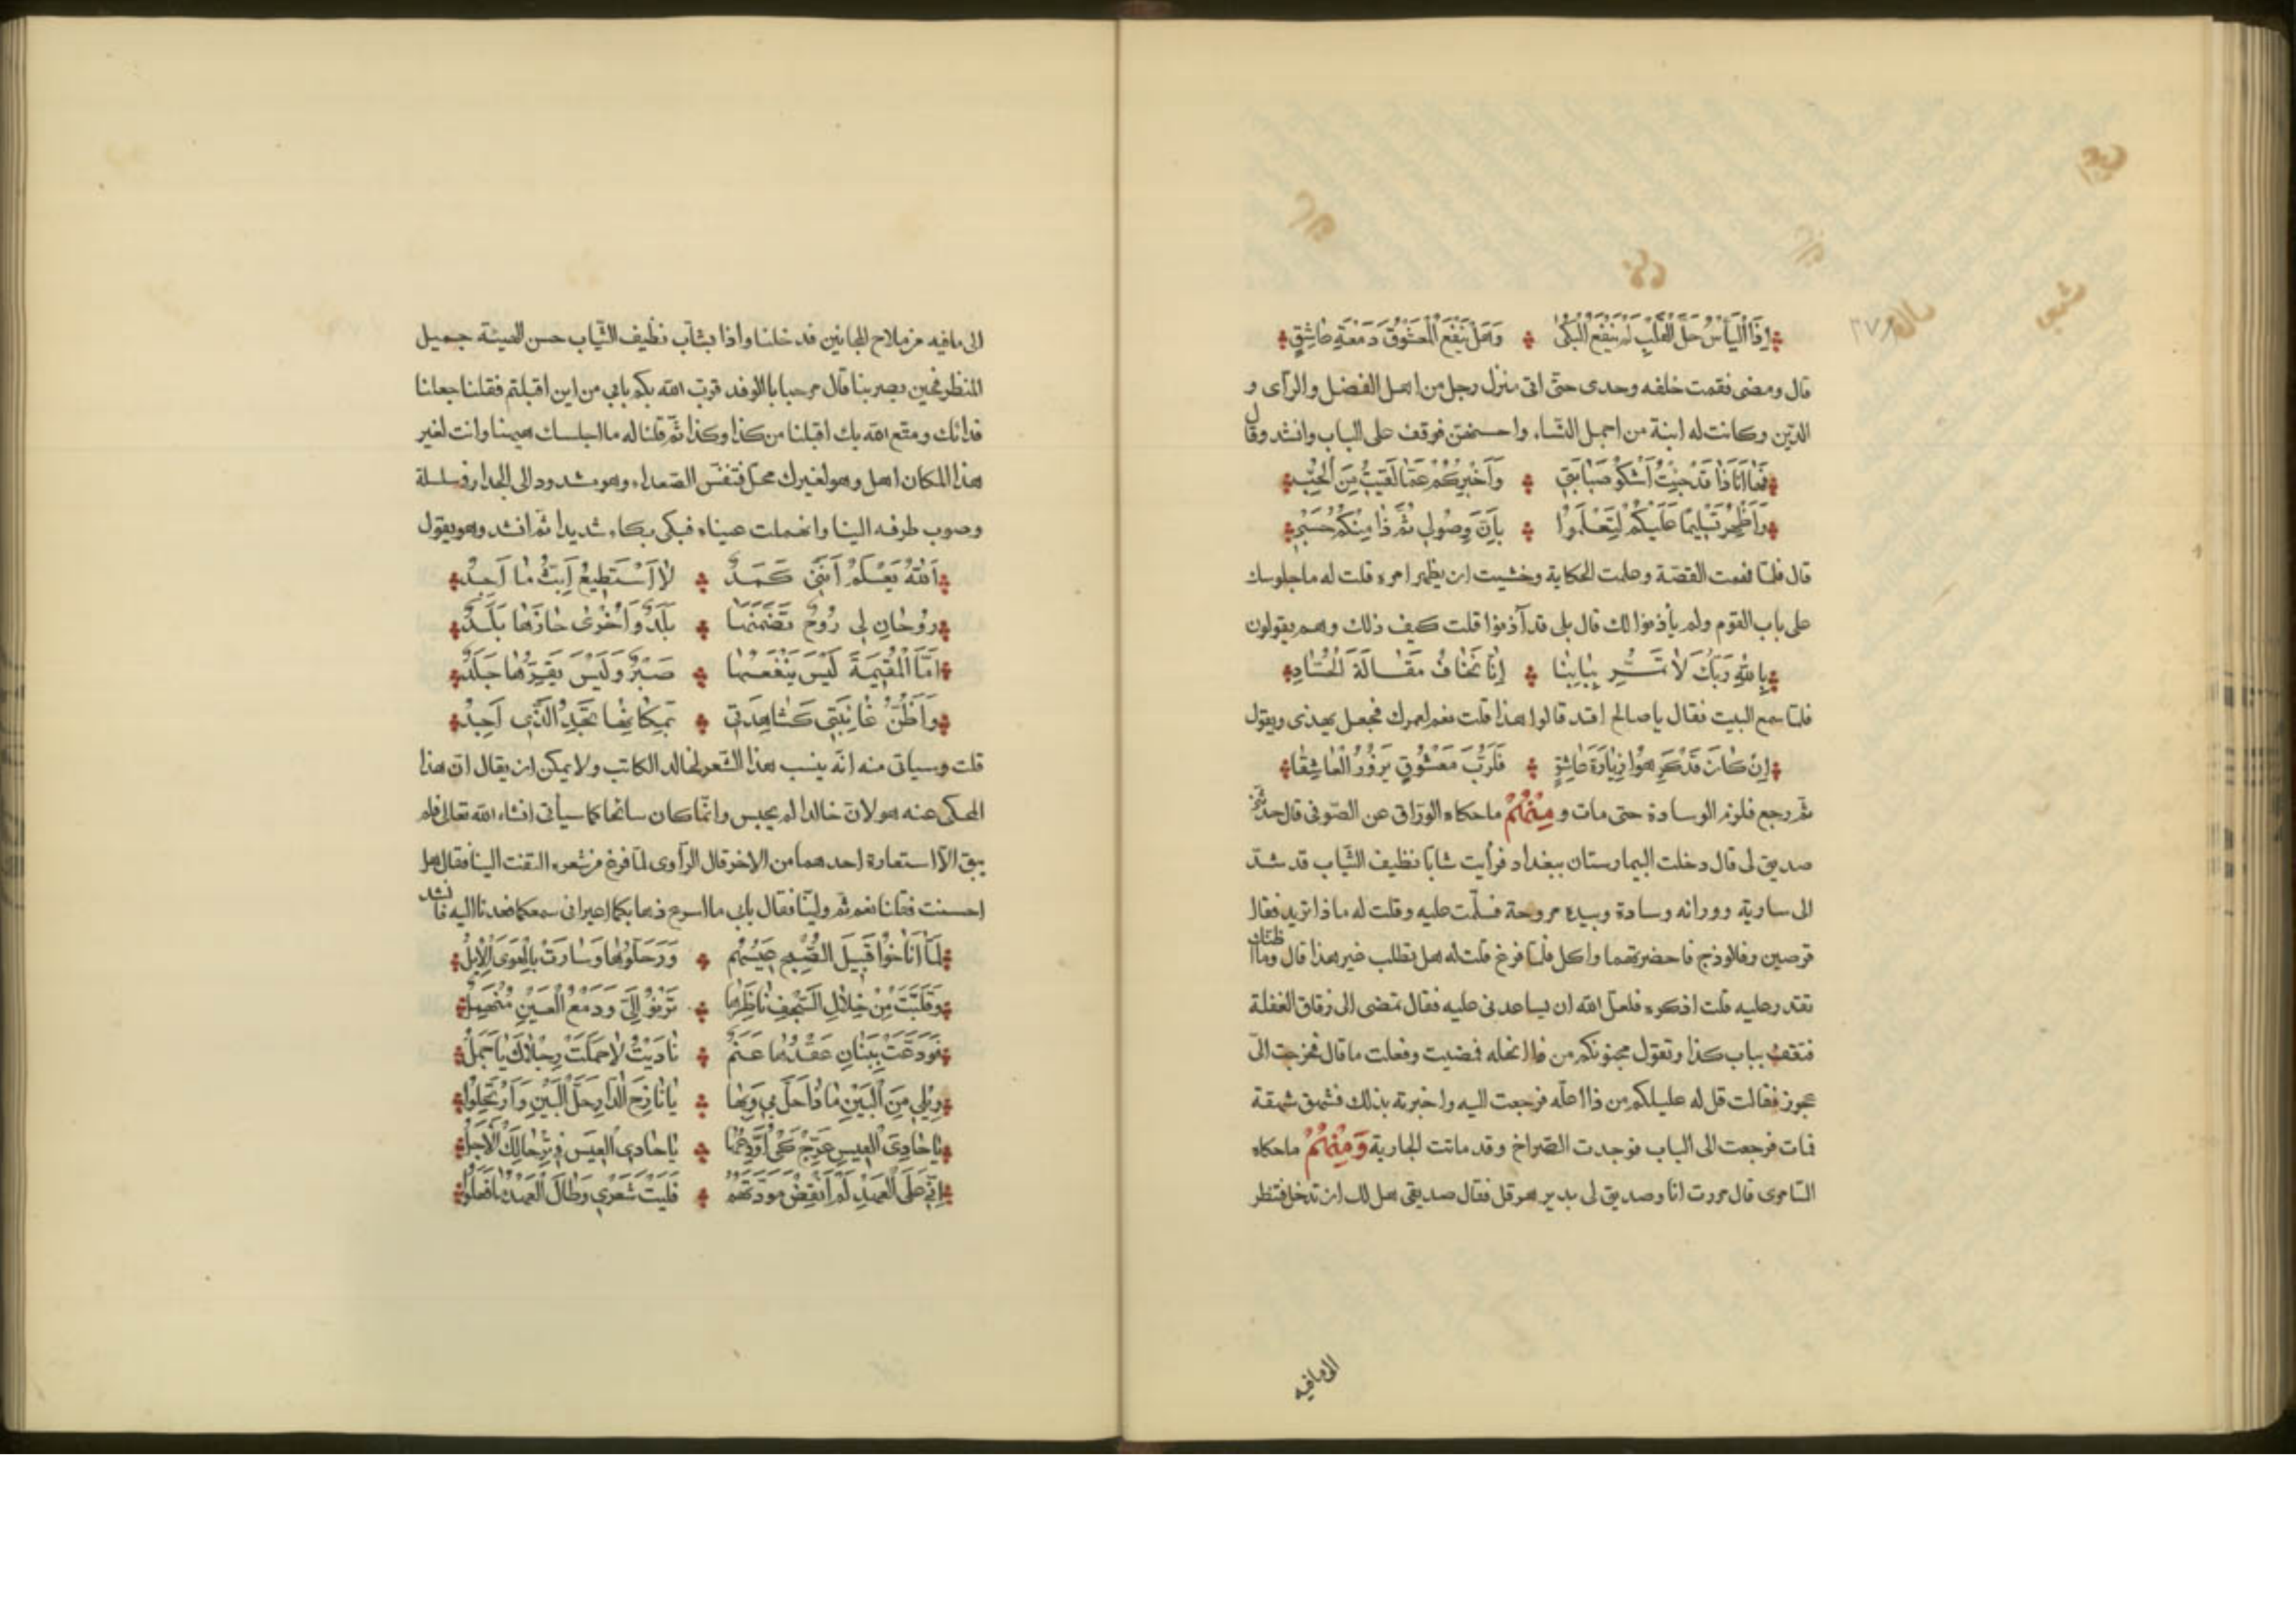 إِذَا الْيَأْسُ حَلَّ الْقَلْبَ لَمْ يَنْفَعِ الْبُكٰى وَهَلْ يَنْفَعُ الْمَعْشُوقَ دَمْعَةُ عَاشِقٍ
قال ومضى فقمت خلفه وحدى حتّى اتى منزل رجل من اهل الفضل والرأى و
الدّين وكانت له ابنة من اجمل النّساء واحسنهن فوقف على الباب وانشد وقال
فَهَا اَنَا ذَا قَدْ جِئْتُ اَشْكُو صَبَابَتِى وَاُخْبِرُكُمْ عَمَّا لَقِيتُ مِنَ الْحُبِّ
وَاُظْهِرُ تَسْلِيمًا عَلَيْكُمْ لِتَعْلَمُوا بِاَنَّ وُصُولِى ثُمَّ ذَا مِنْكُمْ حَسْبِى
قال فلمّا فهمت القصّة وعلمت الحكاية وخشيت ان يظهر امره قلت له ما جلوسك
على باب القوم ولم يأذنوا لك قال بلى قد آذنوا قلت كيف ذلك وهم يقولون
بِاللّٰهِ رَبِّكَ لاَ تَمُرَّ بِبَابِنَا اِنَّا نَخَافُ مَقَالَةَ الْحُسَّادِ
فلمّا سمع البيت فقال يا صالح اقد قالوا هذا قلت نعم لعمرك فجعل يهذى ويقول
اِنْ كَانَ قَدْ كَرِهُوا زِيَارَةَ عَاشِقٍ فَلَرُبَّ مَعْشُوقٍ يَزُورُ الْعَاشِقَا
ثم رجع فلزم الوسادة حتى مات ومِنْهُمْ ماحكاه الورّاق عن الصّوفى قال حدّثنى
صديق لى قال دخلت البيمارستان ببغداد فرأيت شابّا نظيف الثّياب قد شدّ
الى سارية وورائه وسادة وبيده مروحة فسلّمت عليه وقلت له ما ذا تريد فقال
قرصين وفالوذج فاحضرتهما واكل فلمّا فرغ قلت له هل تطلب غير هذا قال وما اظنك
تقدر عليه قلت اذكره فلعلّ الله ان يساعدنى عليه فقال تمضى الى زقاق الغفلة
فتقف بباب كذا وتقول مجنونكم من ذا انحله فمضيت وفعلت ما قال فخرجت الىّ
عجوز فقالت قل له عليلكم من ذا اعلّه فرجعت اليه واخبرته بذلك فشهق شهقة
فمات فرجعت الى الباب فوجدت الصّراخ وقد ماتت الجارية وَمِنْهُمْ ماحكاه
السّامرى قال مررت انا وصديق لى بدير هرقل فقال صديقى هل لك ان تدخل فتنظر
الى مافيه
الى مافيه من ملاح المجانين فدخلنا واذا بشابّ نظيف الثّياب حسن الهيئة جميل
المنظر فحين بصر بنا قال مرحبا بالوفد قرب الله بكم بابى من اين اقبلتم فقلنا جعلنا
فدائك ومتّع الله بك اقبلنا من كذا وكذا ثمّ قلنا له ما اجلسك هيهنا وانت لغير
هذا المكان اهل وهو لغيرك محلّ فتنفّس الصّعداء وهو مشدود الى الجدار فى سلسلة
وصوب طرفه الينا وانهملت عيناه فبكى بكاء شديدا ثم انشد وهو يقول
اَللّٰهُ يَعْلَمُ اَنَّنِى كَمَدٌ لاَ اَسْتَطِيعُ اَبُثُّ مَا اَجِدُ
رُوحَانِ لِى رُوحٌ تَضَمَّنَهَا بَلَدٌ وَاُخْرٰى حَازَهَا بَلَدٌ
اَمَّا الْمُقِيمَةُ لَيْسَ يَنْفَعُهَا صَبْرٌ وَلَيْسَ يَقِرُّهَا جَلَدٌ
وَاَظُنُّ غَائِبَتِى كَشَاهِدَتِى بِمَكَانِهَا تَجِدُ الَّذِى اَجِدُ
قلت وسيأتى منه انّه ينسب هذا الشّعر لخالد الكاتب ولا يمكن ان يقال ان هذا
المحكى عنه هو لانّ خالدا لم يحبس وانّما كان سائحا كما سيأتى انشاء الله تعالى فلم
يبق الاّ استعارة احدهما من الاخر قال الرّاوى لمّا فرغ من شعره التفت الينا فقال هل
احسنت فقلنا نعم ثم ولّينا فقال بابى ما اسرع ذهابكما اعيرانى سمعكما فعدنا اليه فانشد
لَمَّا اَنَاخُوا قُبَيْلَ الصُّبْحِ عِيسَهُمْ وَرَحَّلُوهَا وَسَارَتْ بِالْهَوَى الْاِبِلُ
وَقَلَّبَتْ مِنْ خِلاَلِ السَّجْفِ نَاظِرَهَا تَرْنُو اِلَىَّ وَدَمْعُ الْعَيْنِ مُنْهَمِلٌ
فَوَدَّعَتْ بِبَنَانٍ عَقْدُهَا عَنَمٌ نَادَيْتُ لاَ حَمَلَتْ رِجْلاَكَ يَا جَمَلُ
وَيْلِى مِنَ الْبَيْنِ مَا ذَا حَلَّ بِى وَبِهَا يَا نَازِحَ الدَّارِ حَلَّ الْبَيْنُ وَارْتَحَلُوا
يَا حَادِىَ الْعِيسِ عَرِّجْ كَىْ اُوَدِّعَهَا يَا حَادِىَ الْعِيسِ فِى تِرْحَالِكَ الْاَجَلُ
اِنِّى عَلَى الْعَهْدِ لَمْ اَنْقُضْ مَوَدَّتَهُمْ فَلَيْتَ شِعْرِى وَطَالَ الْعَهْدُ مَا فَعَلُوا